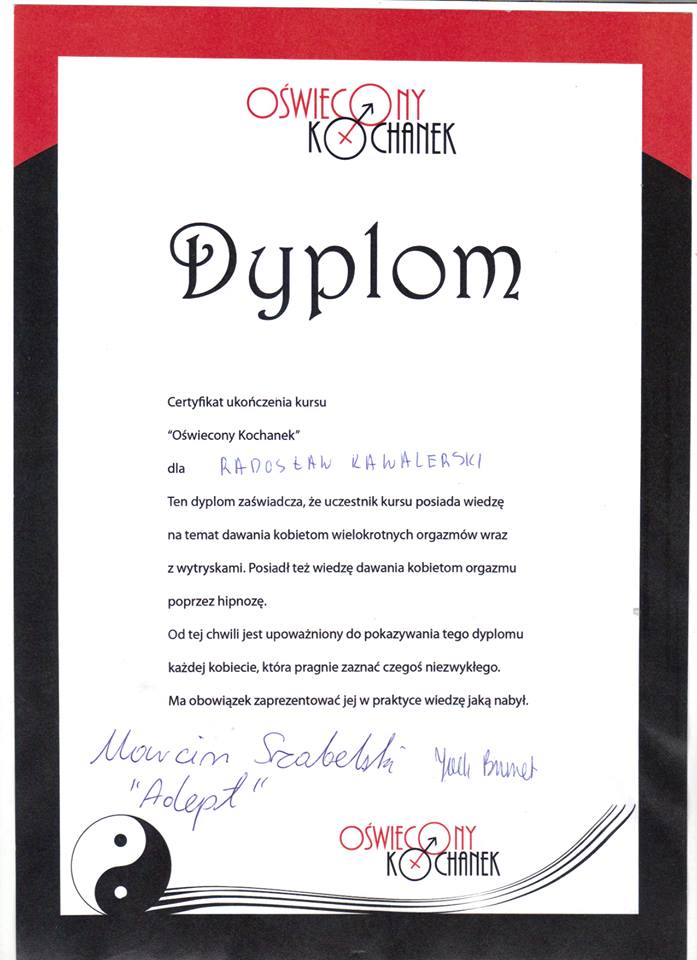 OŚWIECONY
KOCHANEK
Dyplom
Certyfikat ukończenia kursu
“Oświecony Kochanek”
dla RADOSŁAW KAWALERSKI
Ten dyplom zaświadcza, że uczestnik kursu posiada wiedzę
na temat dawania kobietom wielokrotnych orgazmów wraz
z wytryskami. Posiadł też wiedzę dawania kobietom orgazmu
poprzez hipnozę.
Od tej chwili jest upoważniony do pokazywania tego dyplomu
każdej kobiecie, która pragnie zaznać czegoś niezwykłego.
Ma obowiązek zaprezentować jej w praktyce wiedzę jaką nabył.
Marcin Szabelski
"Adept"
OŚWIECONY
KOCHANEK